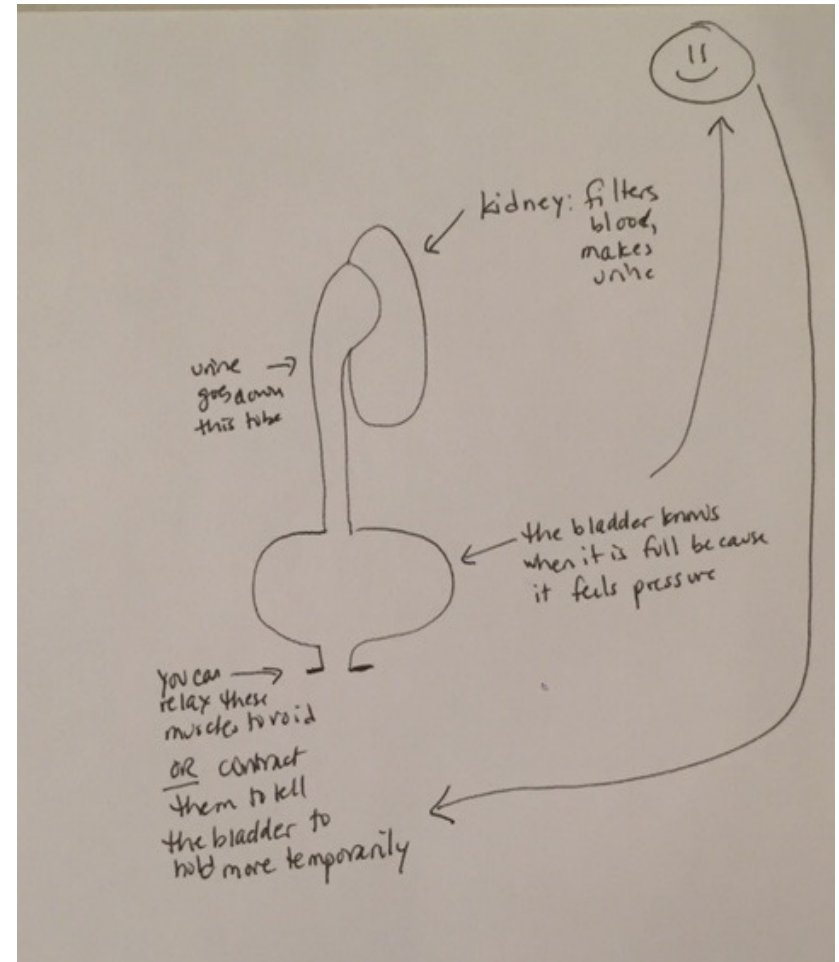 kidney: filters
blood,
makes
urine
urine
goes down
this tube
the bladder knows
when it is full because
it feels pressure
You can
relax these
muscles to void
OR contract
them to tell
the bladder to
hold more temporarily